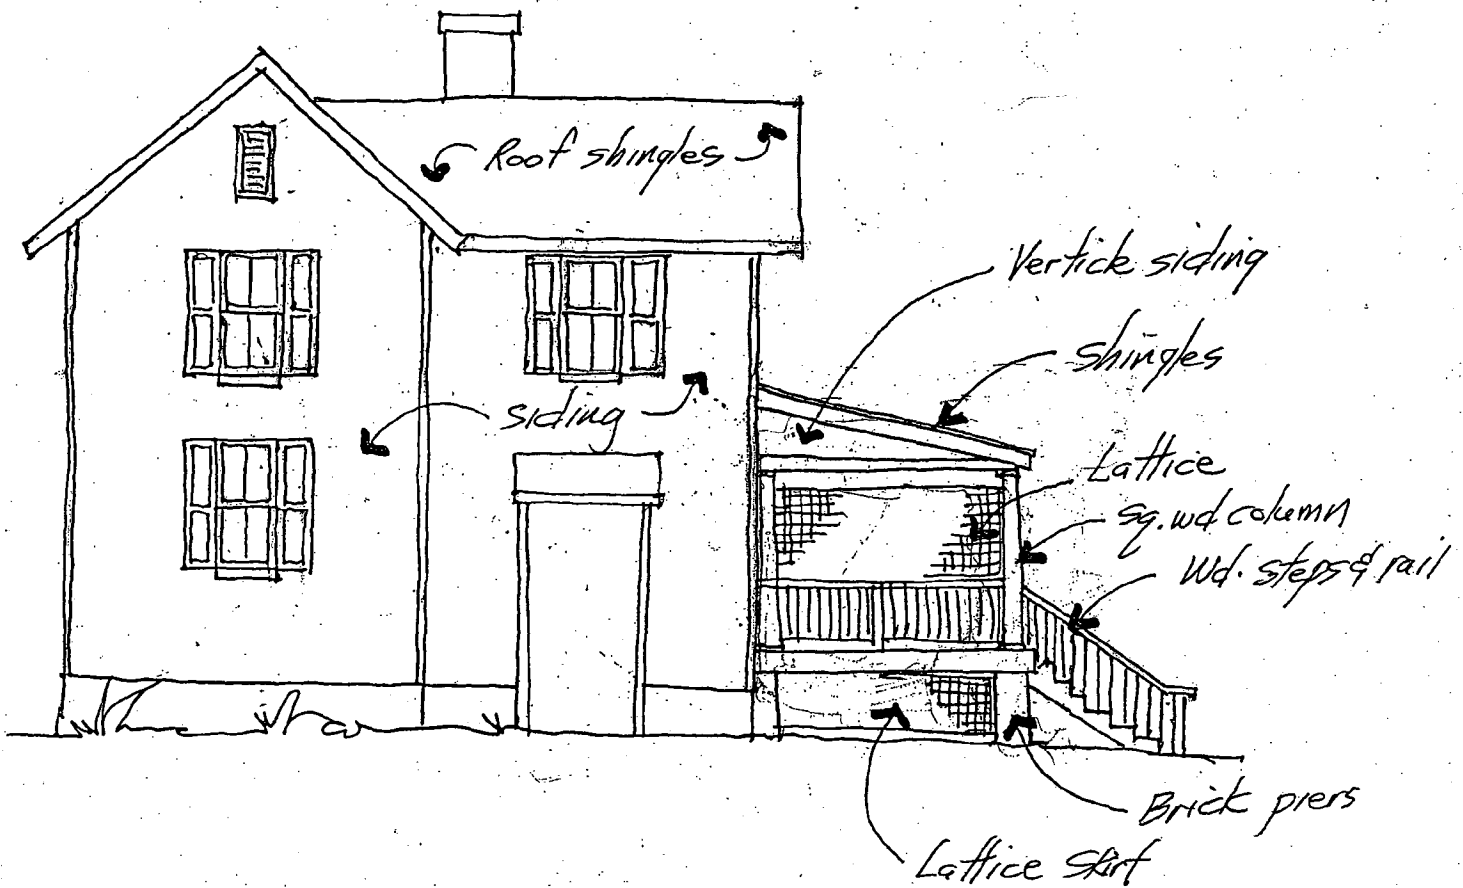 Roof shingles
Vertick siding
shingles
siding
Lattice
sq. wd column
Wd. steps & rail
Brick piers
Lattice Skirt